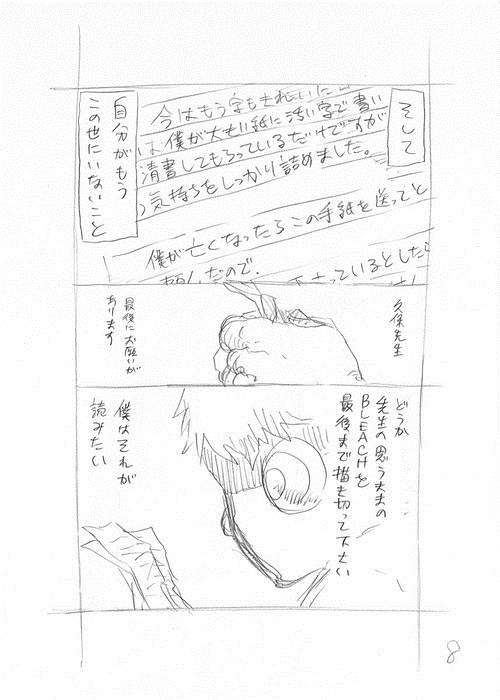 そして
今はもう字もきれいに
は僕が大きい紙に汚い字で書い
清書してもらっているだけですが
気持ちをしっかり詰めました。
僕が亡くなったらこの手紙を送ってと
頼んだので、
っているとしたら
自分がもう
この世にいないこと
久保先生
最後にお願いが
あります
どうか
先生の思うままの
BLEACHを
最後まで描き切って下さい
僕はそれが
読みたい
8